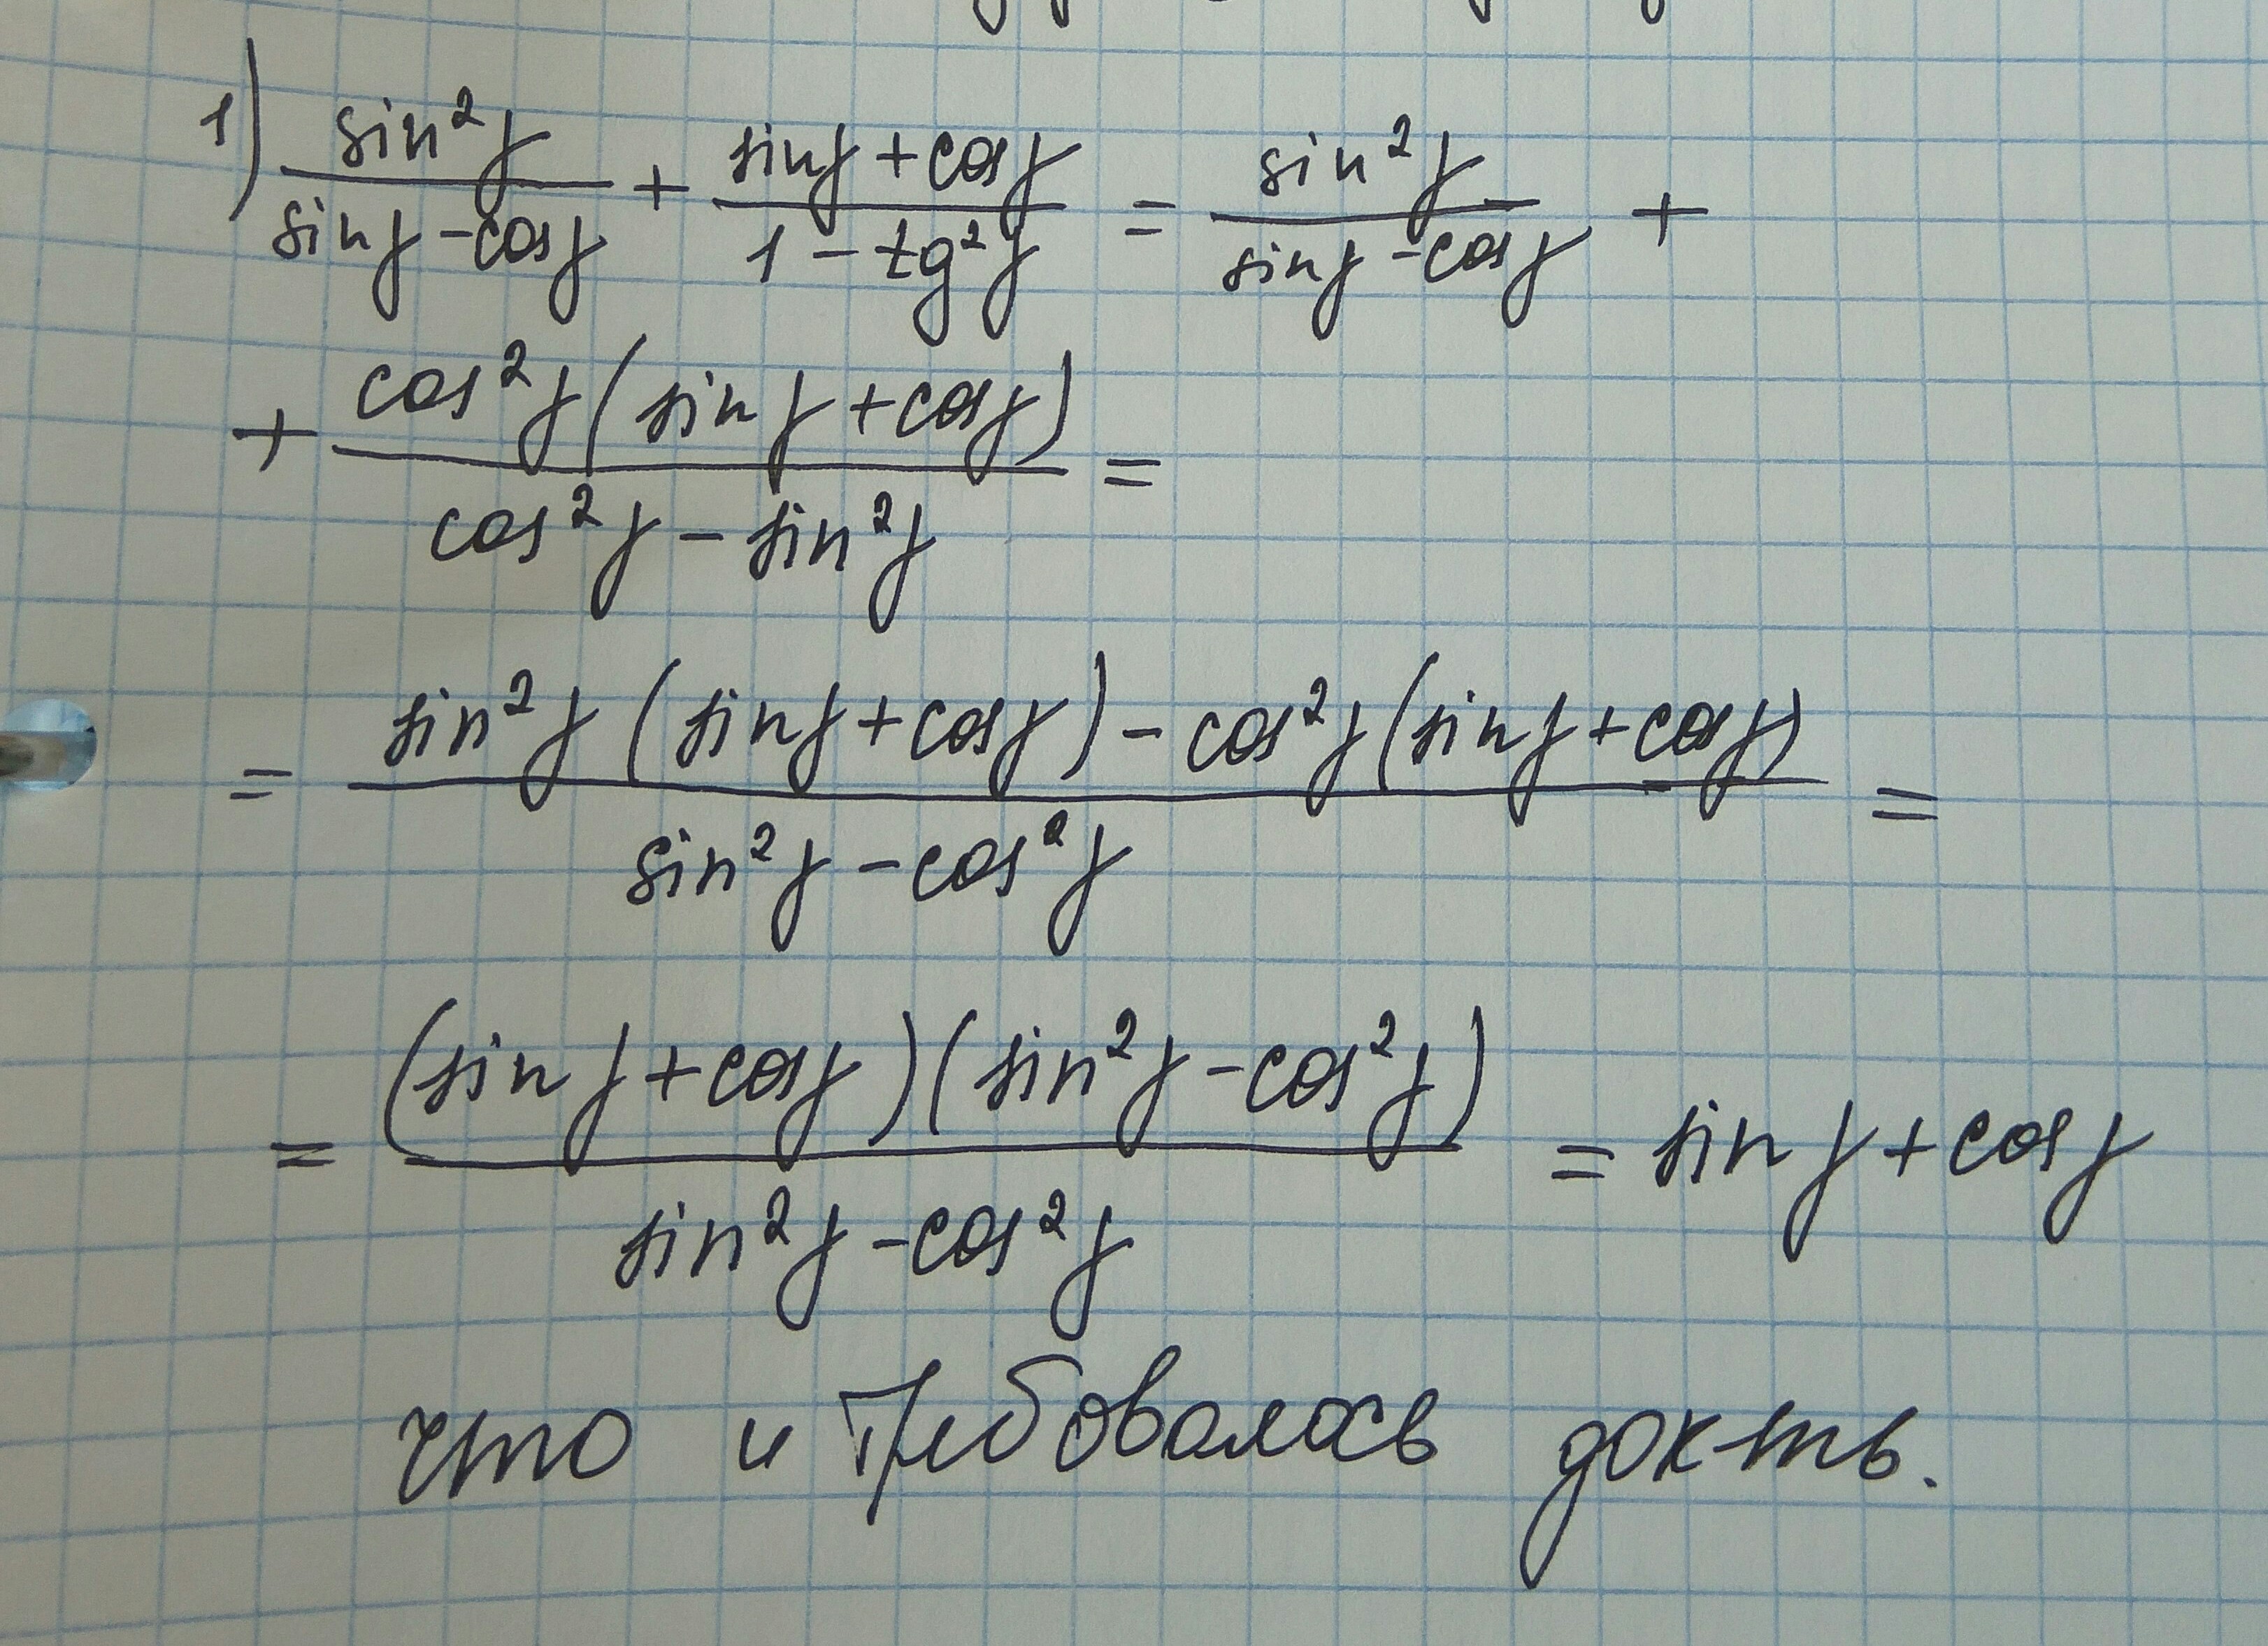 1) sin²y / (sin y - cos y) + (sin y + cos y) / (1 - tg²y) = sin²y / (sin y - cos y) +
+ cos²y (sin y + cos y) / (cos²y - sin²y) =
= (sin²y (sin y + cos y) - cos²y (sin y + cos y)) / (sin²y - cos²y) =
= (sin y + cos y)(sin²y - cos²y) / (sin²y - cos²y) = sin y + cos y
что и требовалось док-ть.